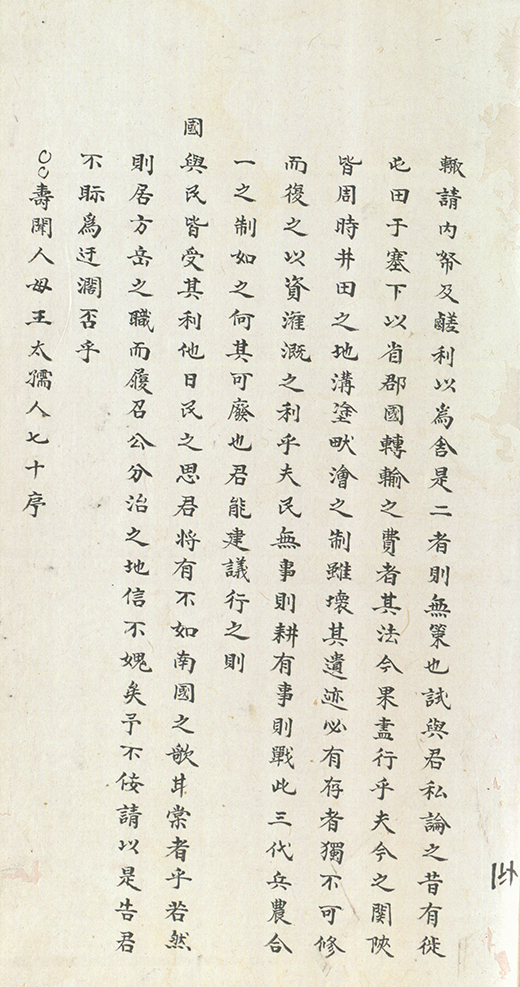 輙請内帑及鹺利以為舍是二者則無策也試與君私論之昔有徙
屯田于塞下以省郡國轉輸之費者其法今果盡行乎夫今之關陜
皆周時井田之地溝塗畎澮之制雖壞其遺迹必有存者獨不可修
而復之以資漼溉之利乎夫民無事則耕有事則戰此三代兵農合
一之制如之何其可廢也君能建議行之則
國與民皆受其利他日民之思君將有不如南國之歌甘棠者乎若然
則居方岳之職而履召公分治之地信不媿矣予不佞請以是告君
不眎為迂濶否乎
○○壽閑人母王太孺人七十序